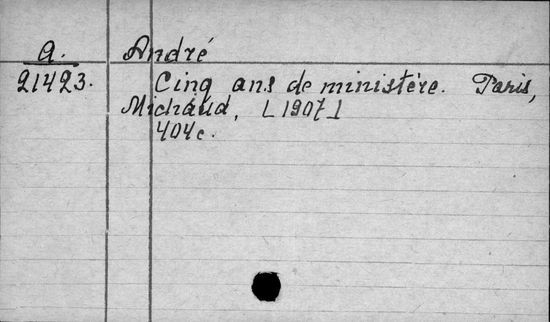 A. André
21423. Cinq ans de ministère. Paris,
Michaud, [1907]
404 c.